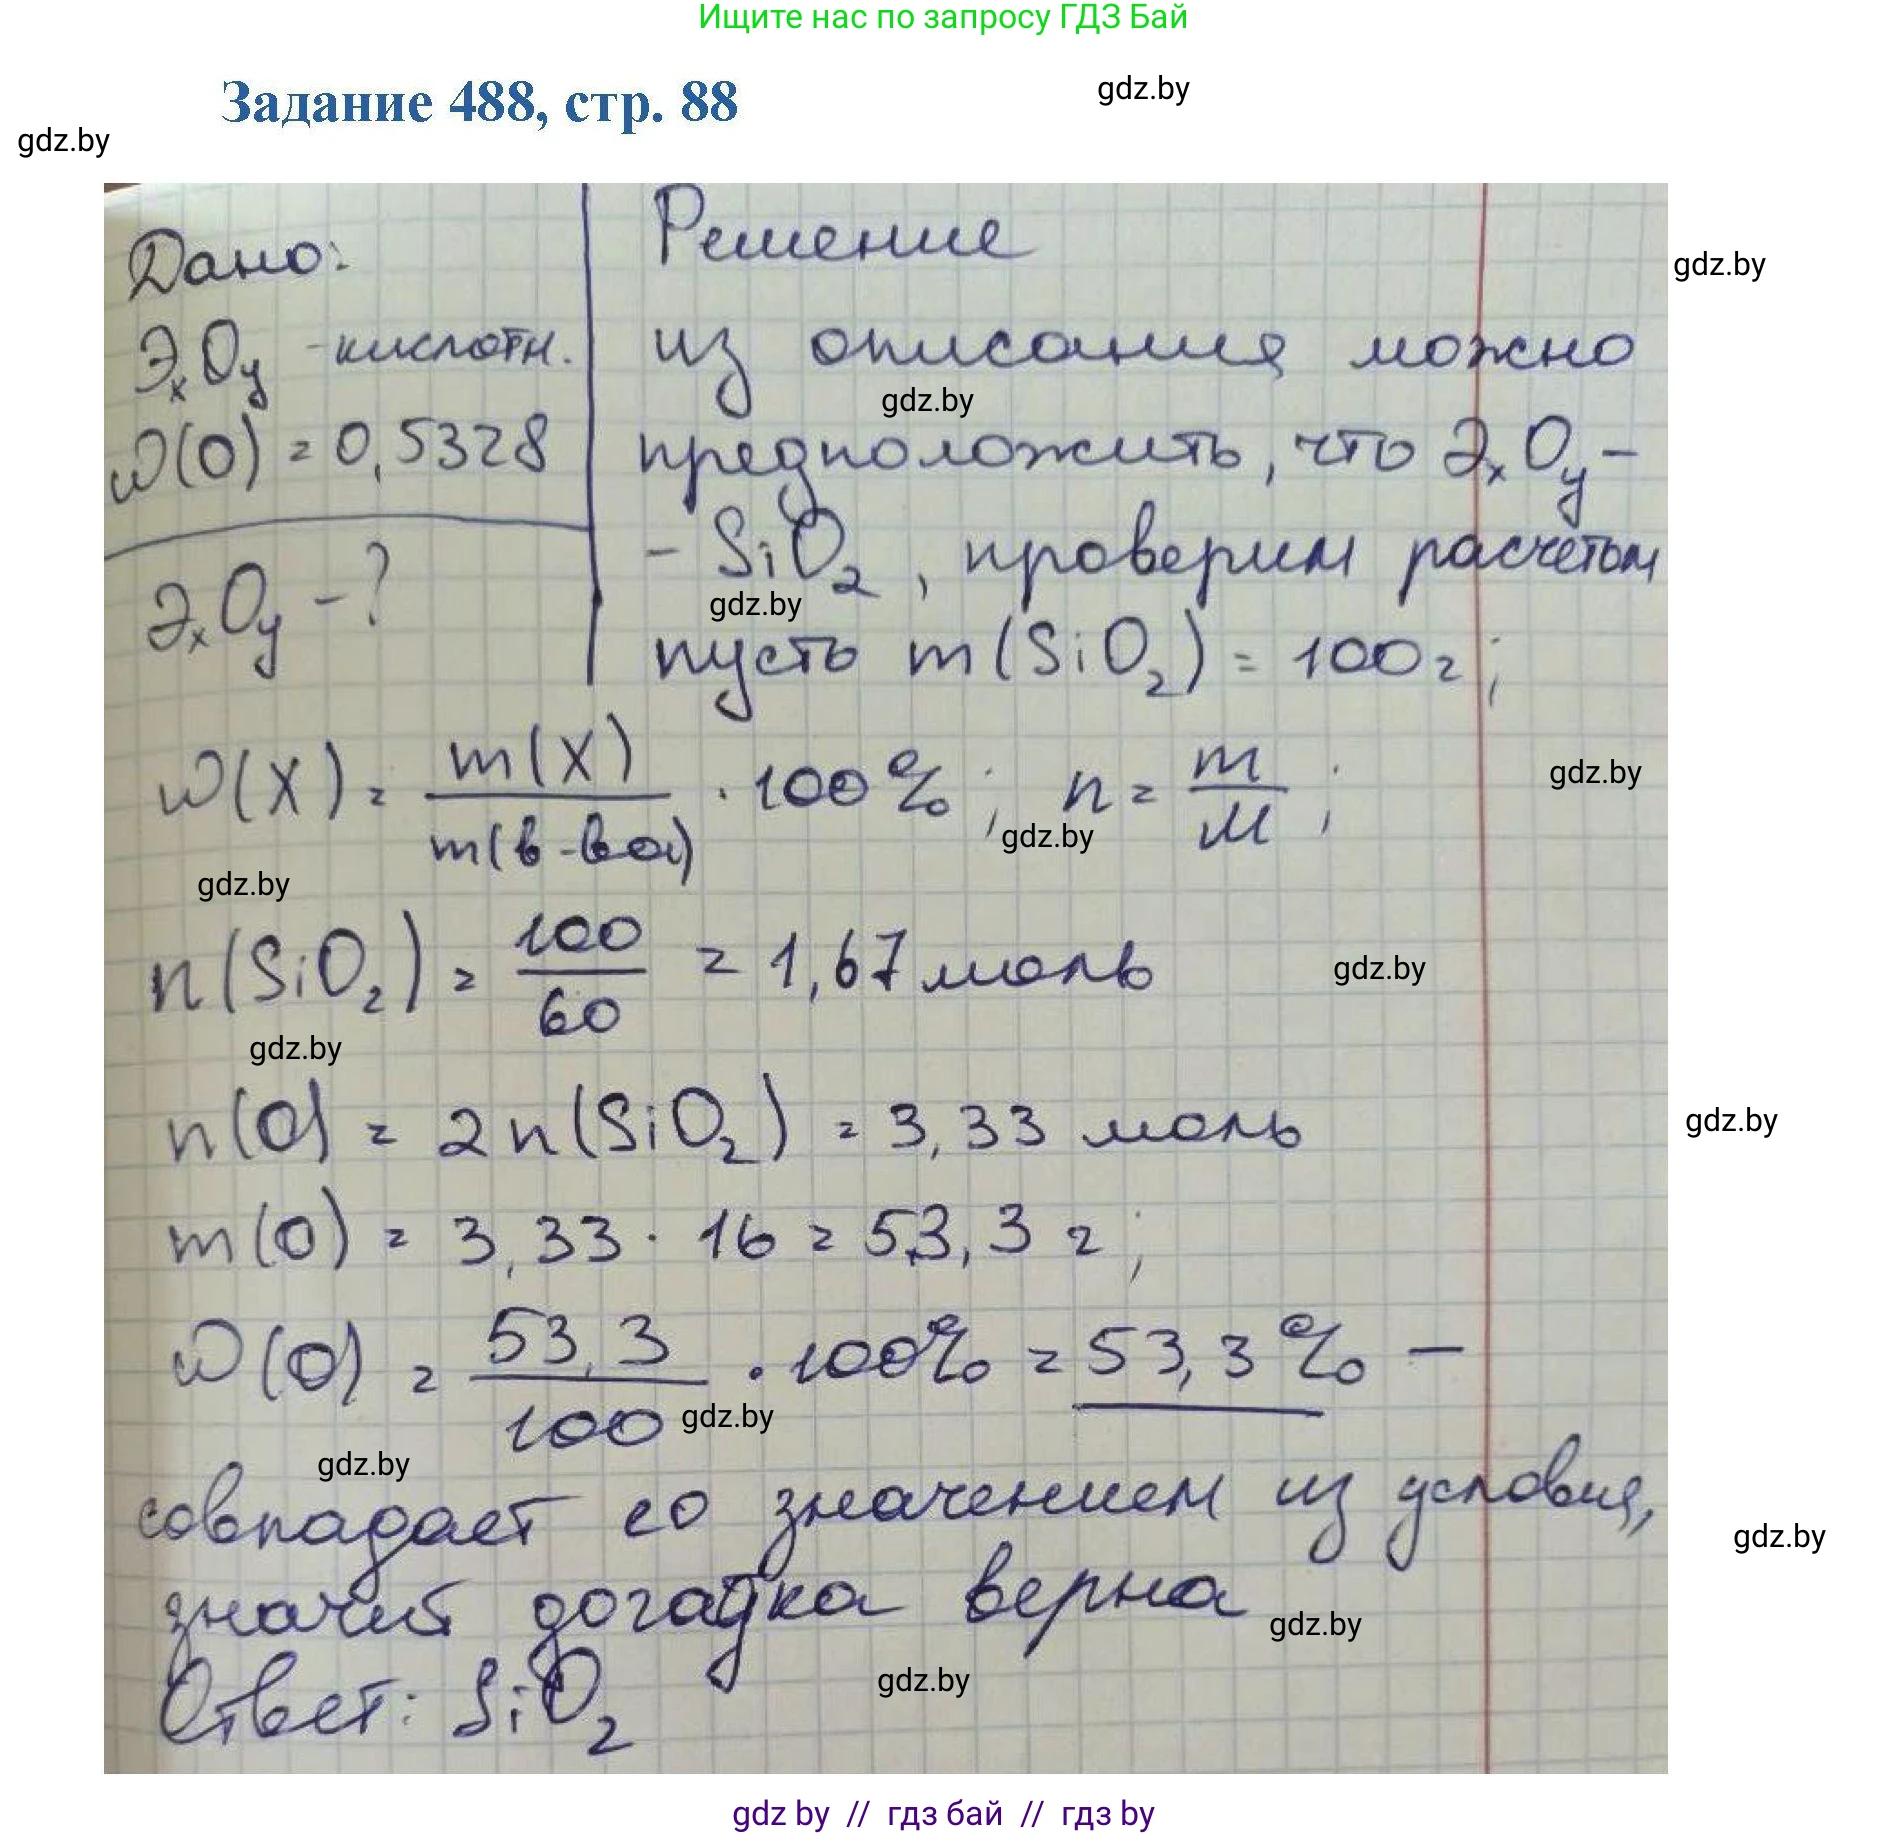 Ищите нас по запросу ГДЗ Бай
gdz.by
Задание 488, стр. 88
gdz.by
Дано:
ЭₓOᵧ - кислотн.
ω(O) = 0,5328
ЭₓOᵧ - ?
Решение
gdz.by
из описания можно
gdz.by
предположить, что ЭₓOᵧ -
- SiO₂, проверим расчетом
gdz.by
пусть m(SiO₂) = 100г;
ω(X) = m(X) / m(в-ва) · 100%; n = m / M;
gdz.by
gdz.by
gdz.by
n(SiO₂) = 100 / 60 = 1,67 моль
gdz.by
gdz.by
n(O) = 2n(SiO₂) = 3,33 моль
gdz.by
m(O) = 3,33 · 16 = 53,3 г;
ω(O) = 53,3 / 100 · 100% = 53,3% -
gdz.by
gdz.by
совпадает со значением из условия,
gdz.by
значит догадка верна
gdz.by
gdz.by
Ответ: SiO₂
gdz by // гдз бай // гдз by